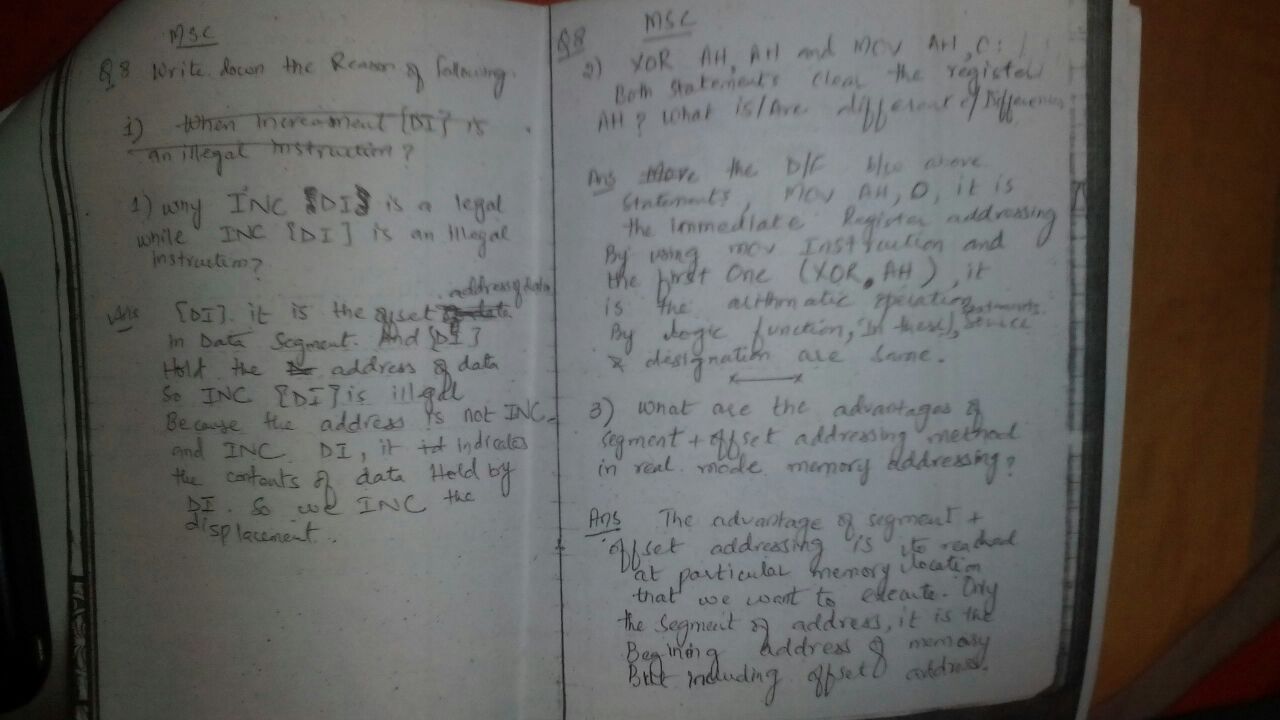 MSC
Q8 Write down the Reason of following.
i) When increament [DI] is
an illegal instruction?
1) why INC [DI] is a legal
while INC [DI] is an Illegal
instruction?
address of data
Ans [DI]. it is the offset of data
in Data Segment. And [DI]
Hold the address of data
So INC [DI] is illegal
Because the address is not INC.
and INC DI, it indicates
the contents of data Held by
DI. So we INC the
displacement.
Q8 MSC
2) XOR AH, AH and MOV AH, 0:
Both statements clear the register
AH? What is/Are different of Differences
Ans Move the D/F b/w above
Statements, MOV AH, 0, it is
the immediate Register addressing
By using mov Instruction and
the first One (XOR, AH), it
is the arithmatic operation
By logic function, In these, statments source
& designation are same.
3) What are the advantages of
segment + offset addressing method
in real mode memory addressing?
Ans The advantage of segment +
offset addressing is to reached
at particular memory location
that we want to execute. Only
the segment of address, it is the
Begining address of memory
But including offset address.